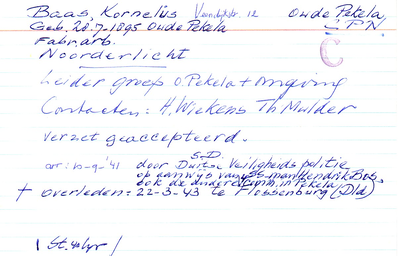 Baas, Kornelius Veendijkstr. 12 Oude Pekela
Geb. 28-7-1895 Oude Pekela C.P.N.
Fabr.arb.
Noorderlicht
C
Leider groep O.Pekela + omgeving
Contacten: H. Wiekens Th Mulder
Verzet geaccepteerd.
S.D.
arr: 10-9-'41 door Duitse Veiligheids politie
op aanwijs van SS-man Hendrik Bos,
ook de andere Comm. in Pekela
+ overleden = 22-3-43 te Flossenburg (Dld)